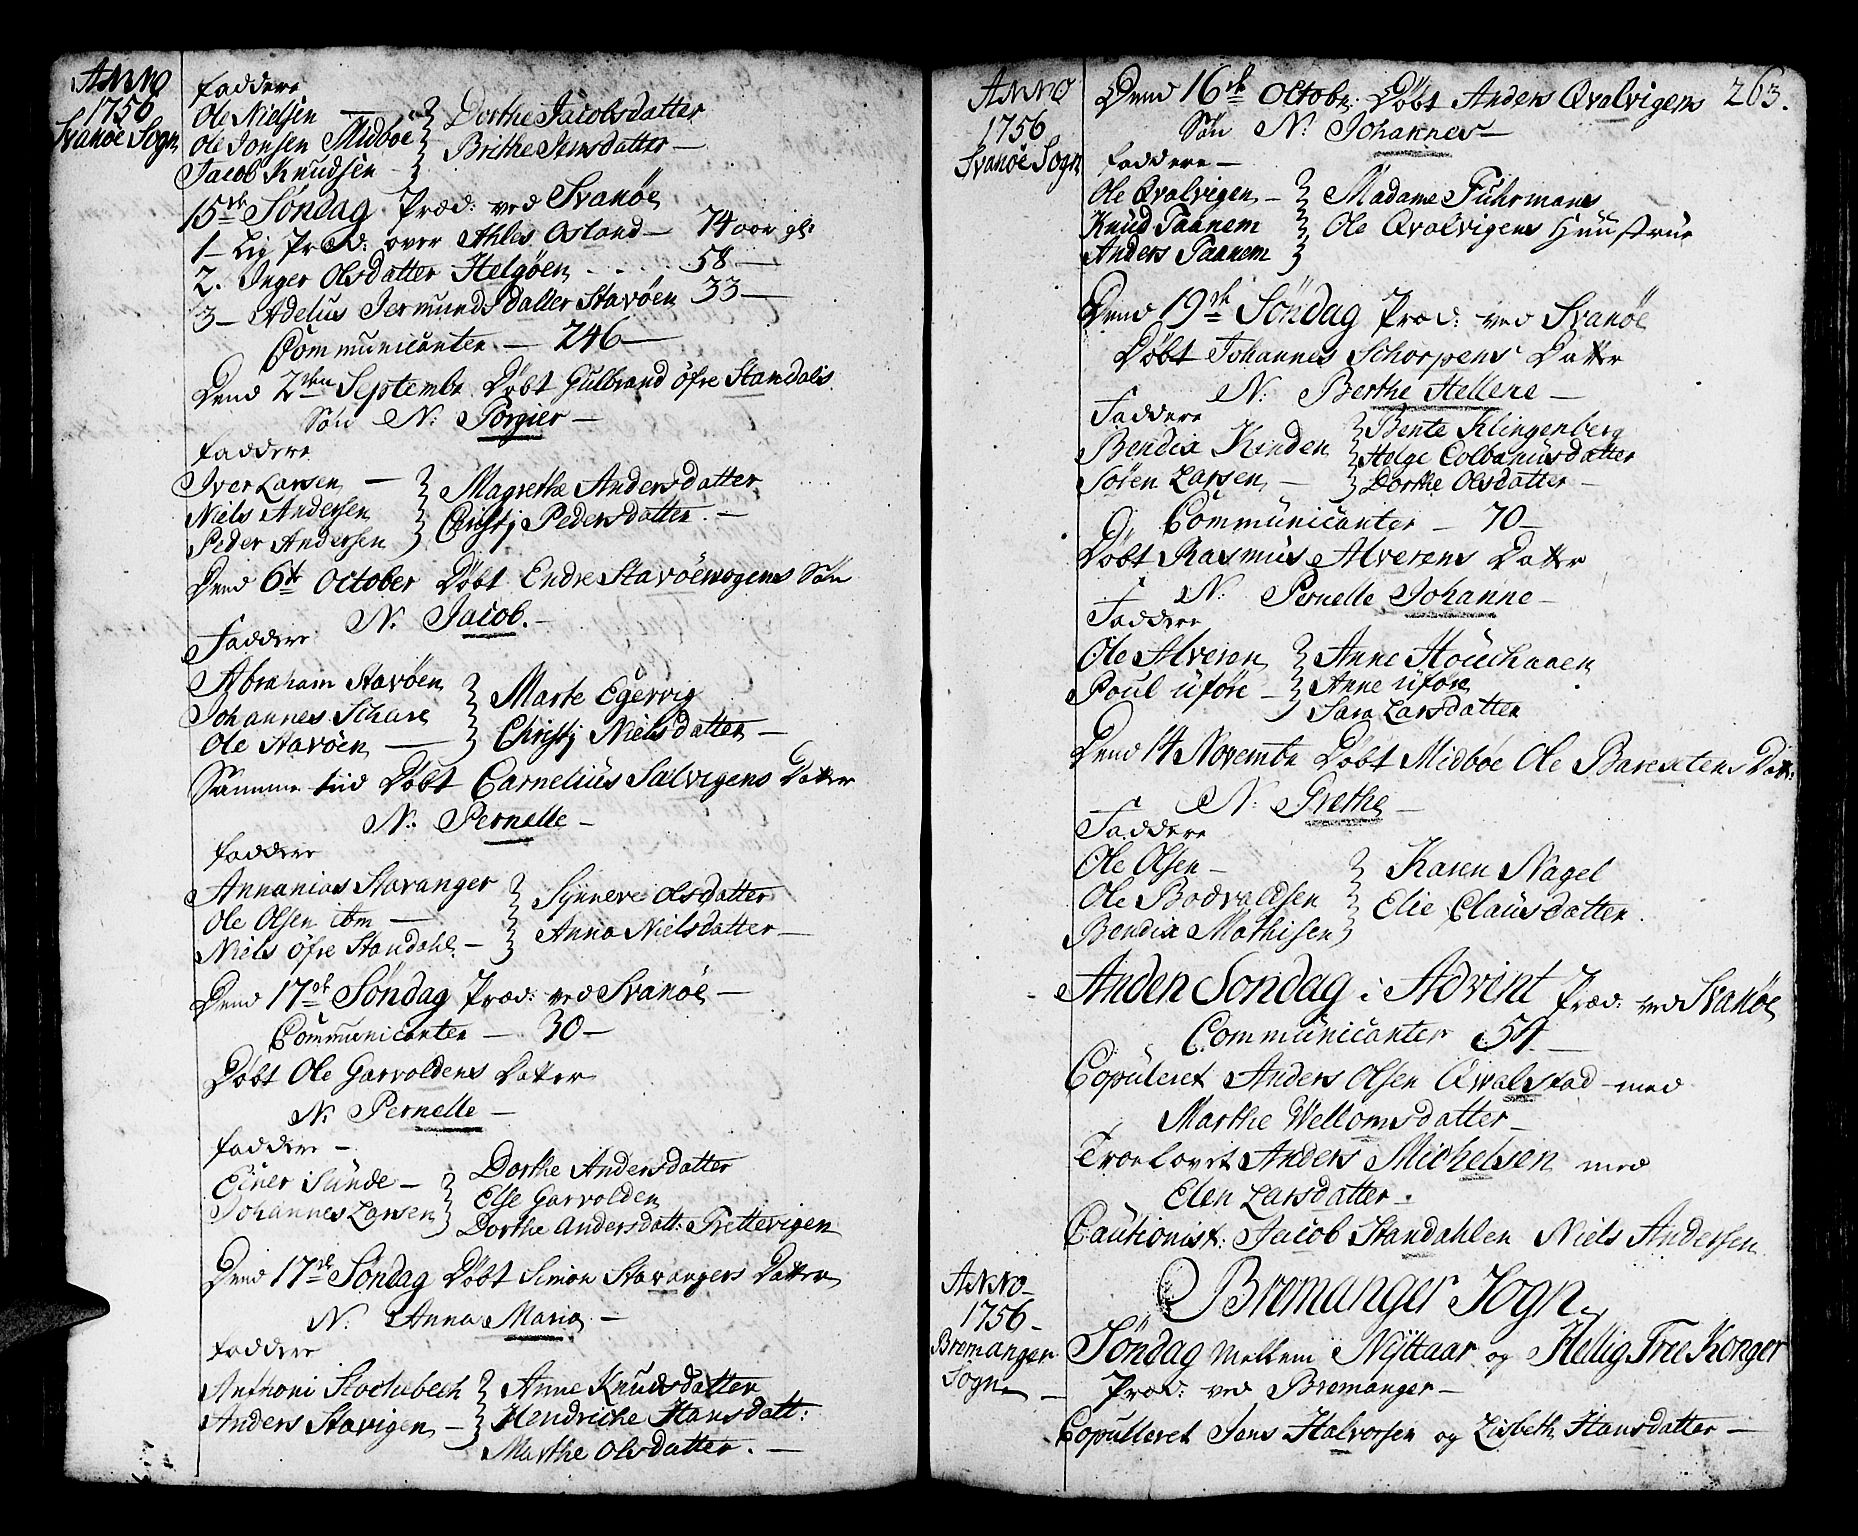 ANNO
1756
Svanöe Sogn
faddere
Ole Nielsen —
Ole Jonsen Midböe
Jacob Knudsen
Dorthe Jacobsdatter
Brithe Jensdatter —
15de Söndag Præd: ved Svanöe
1 — Lig Præd: over Athles Osland — 74 aar gl:
2. Inger Olsdatter Helgöen . . . . 58 —
3 — Adelus Jermundsdatter Stavöen 33 —
Communicanter — 246 —
Dend 2den Septembr Döbt Gulbrand öfre Standals
Sön N: Torgier —
faddere
Iver Larsen —
Niels Andersen
Peder Andersen
Magrethe Andersdatter
Christj Pedersdatter. —
Dend 6te October Döbt Endre Stavöewogens Sön
N: Jacob. —
Faddere
Abraham Stavöen
Johannes Schare
Ole Stavöen —
Marte Egervig
Christj Nielsdatter —
Samme tiid Döbt Carnelius Salvigens Datter
N: Pernelle —
faddere
Annanias Stavanger
Ole Olsen ibm —
Niels öfre Standahl —
Synneve Olsdatter
Anna Nielsdatter —
Dend 17de Söndag Præd: ved Svanöe —
Communicanter — 30 —
Döbt Ole Garvoldens Datter
N: Pernelle —
faddere —
Einer Sunde —
Johannes Larsen
Dorthe Andersdatter
Else Garvolden
Dorthe Andersdatt: Trettevigen
Dend 17de Söndag Döbt Simon Stavangers Datter
N: Anna Maria —
faddere
Anthoni Stochebech
Anders Stavigen —
Anne Knudsdatter
Hendriche Hansdatt:
Marthe Olsdatter. —
263.
ANNO
1756
Svanöe Sogn
Dend 16de Octobr: Döbt Anders Qvalvigens
Sön N: Johannes —
faddere —
Ole Qvalvigen —
Knud Taanem
Anders Taanem
Madame Fuhrmans
Ole Qvalvigens Huustrue
Dend 19de Söndag Præd: ved Svanöe
Döbt Johannes Schorpens Datter
N: Berthe Hellene —
Faddere
Bendix Kinden
Sören Larsen —
Bente Klingenberg
Helge Colbaniusdatter
Dorthe Olsdatter —
Communicanter — 70 —
Döbt Rasmus Alverens Datter
N: Pernelle Johanne —
Faddere
Ole Alveren
Poul Uföre —
Anne Houchanen
Anne Uföre
Sara Larsdatter
Dend 14 Novembr Döbt Midböe Ole Barentens Datt:
N: Grethe —
Faddere
Ole Olsen —
Ole Bodvaldsen
Bendix Mathisen
Karen Nagel
Elie Clausdatter.
Anden Söndag i Advent Præd: ved Svanöe
Communicanter 54 —
Copuleret Anders Olsen Qvalstad — med
Marthe Wellomsdatter —
Troelovet Anders Michelsen med
Elen Larsdatter —.
Cautionist: Jacob Standahlen Niels Andersen
ANNO
1756 —
Bremanger
Sogn —
Bremanger Sogn
Söndag mellem Nyttaar og Hellig Tree Konger
Præd: ved Bremanger —
Copulleret Jens Halvorsen og Lisbeth Hansdatter —